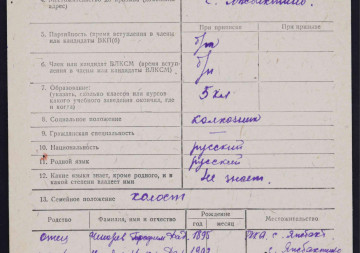 адрес)
с.
При приписке При призыве
5. Партийность (время вступления в члены
или кандидаты ВКП(б)
б/п
6. Член или кандидат ВЛКСМ (время всту-
пления в члены или кандидаты ВЛКСМ)
б/п
7. Образование:
(указать, сколько классов или курсов
какого учебного заведения окончил, где
и когда)
5 кл
8. Социальное положение
колхозник
9. Гражданская специальность
10. Национальность
русский
11. Родной язык
русский
12. Какие языки знает, кроме родного, и в
какой степени владеет ими
Не знает.
13. Семейное положение холост
Родство Фамилия, имя и отчество Рождение Местожительство
год месяц
Отец 1895 с.